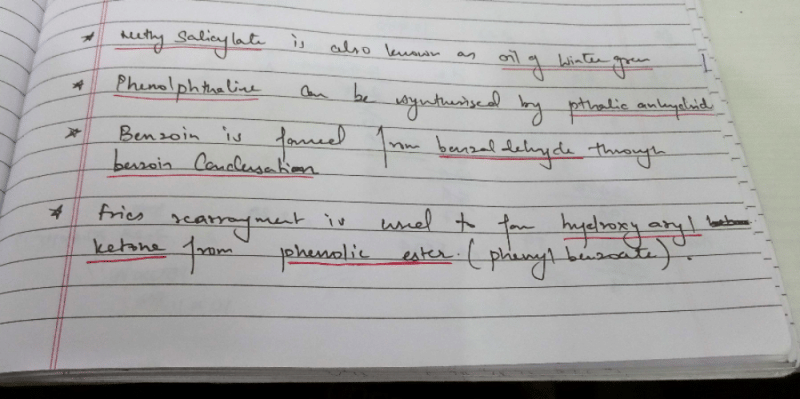 * Methy Salicylate is also known as oil of Winter green
* Phenolphthaline can be synthesised by pthalic anhydrid
* Benzoin is formed from benzaldehyde through
benzoin Condensation
* fries rearrayment is used to form hydroxy aryl
ketone from phenolic ester. (phenyl benzoate).